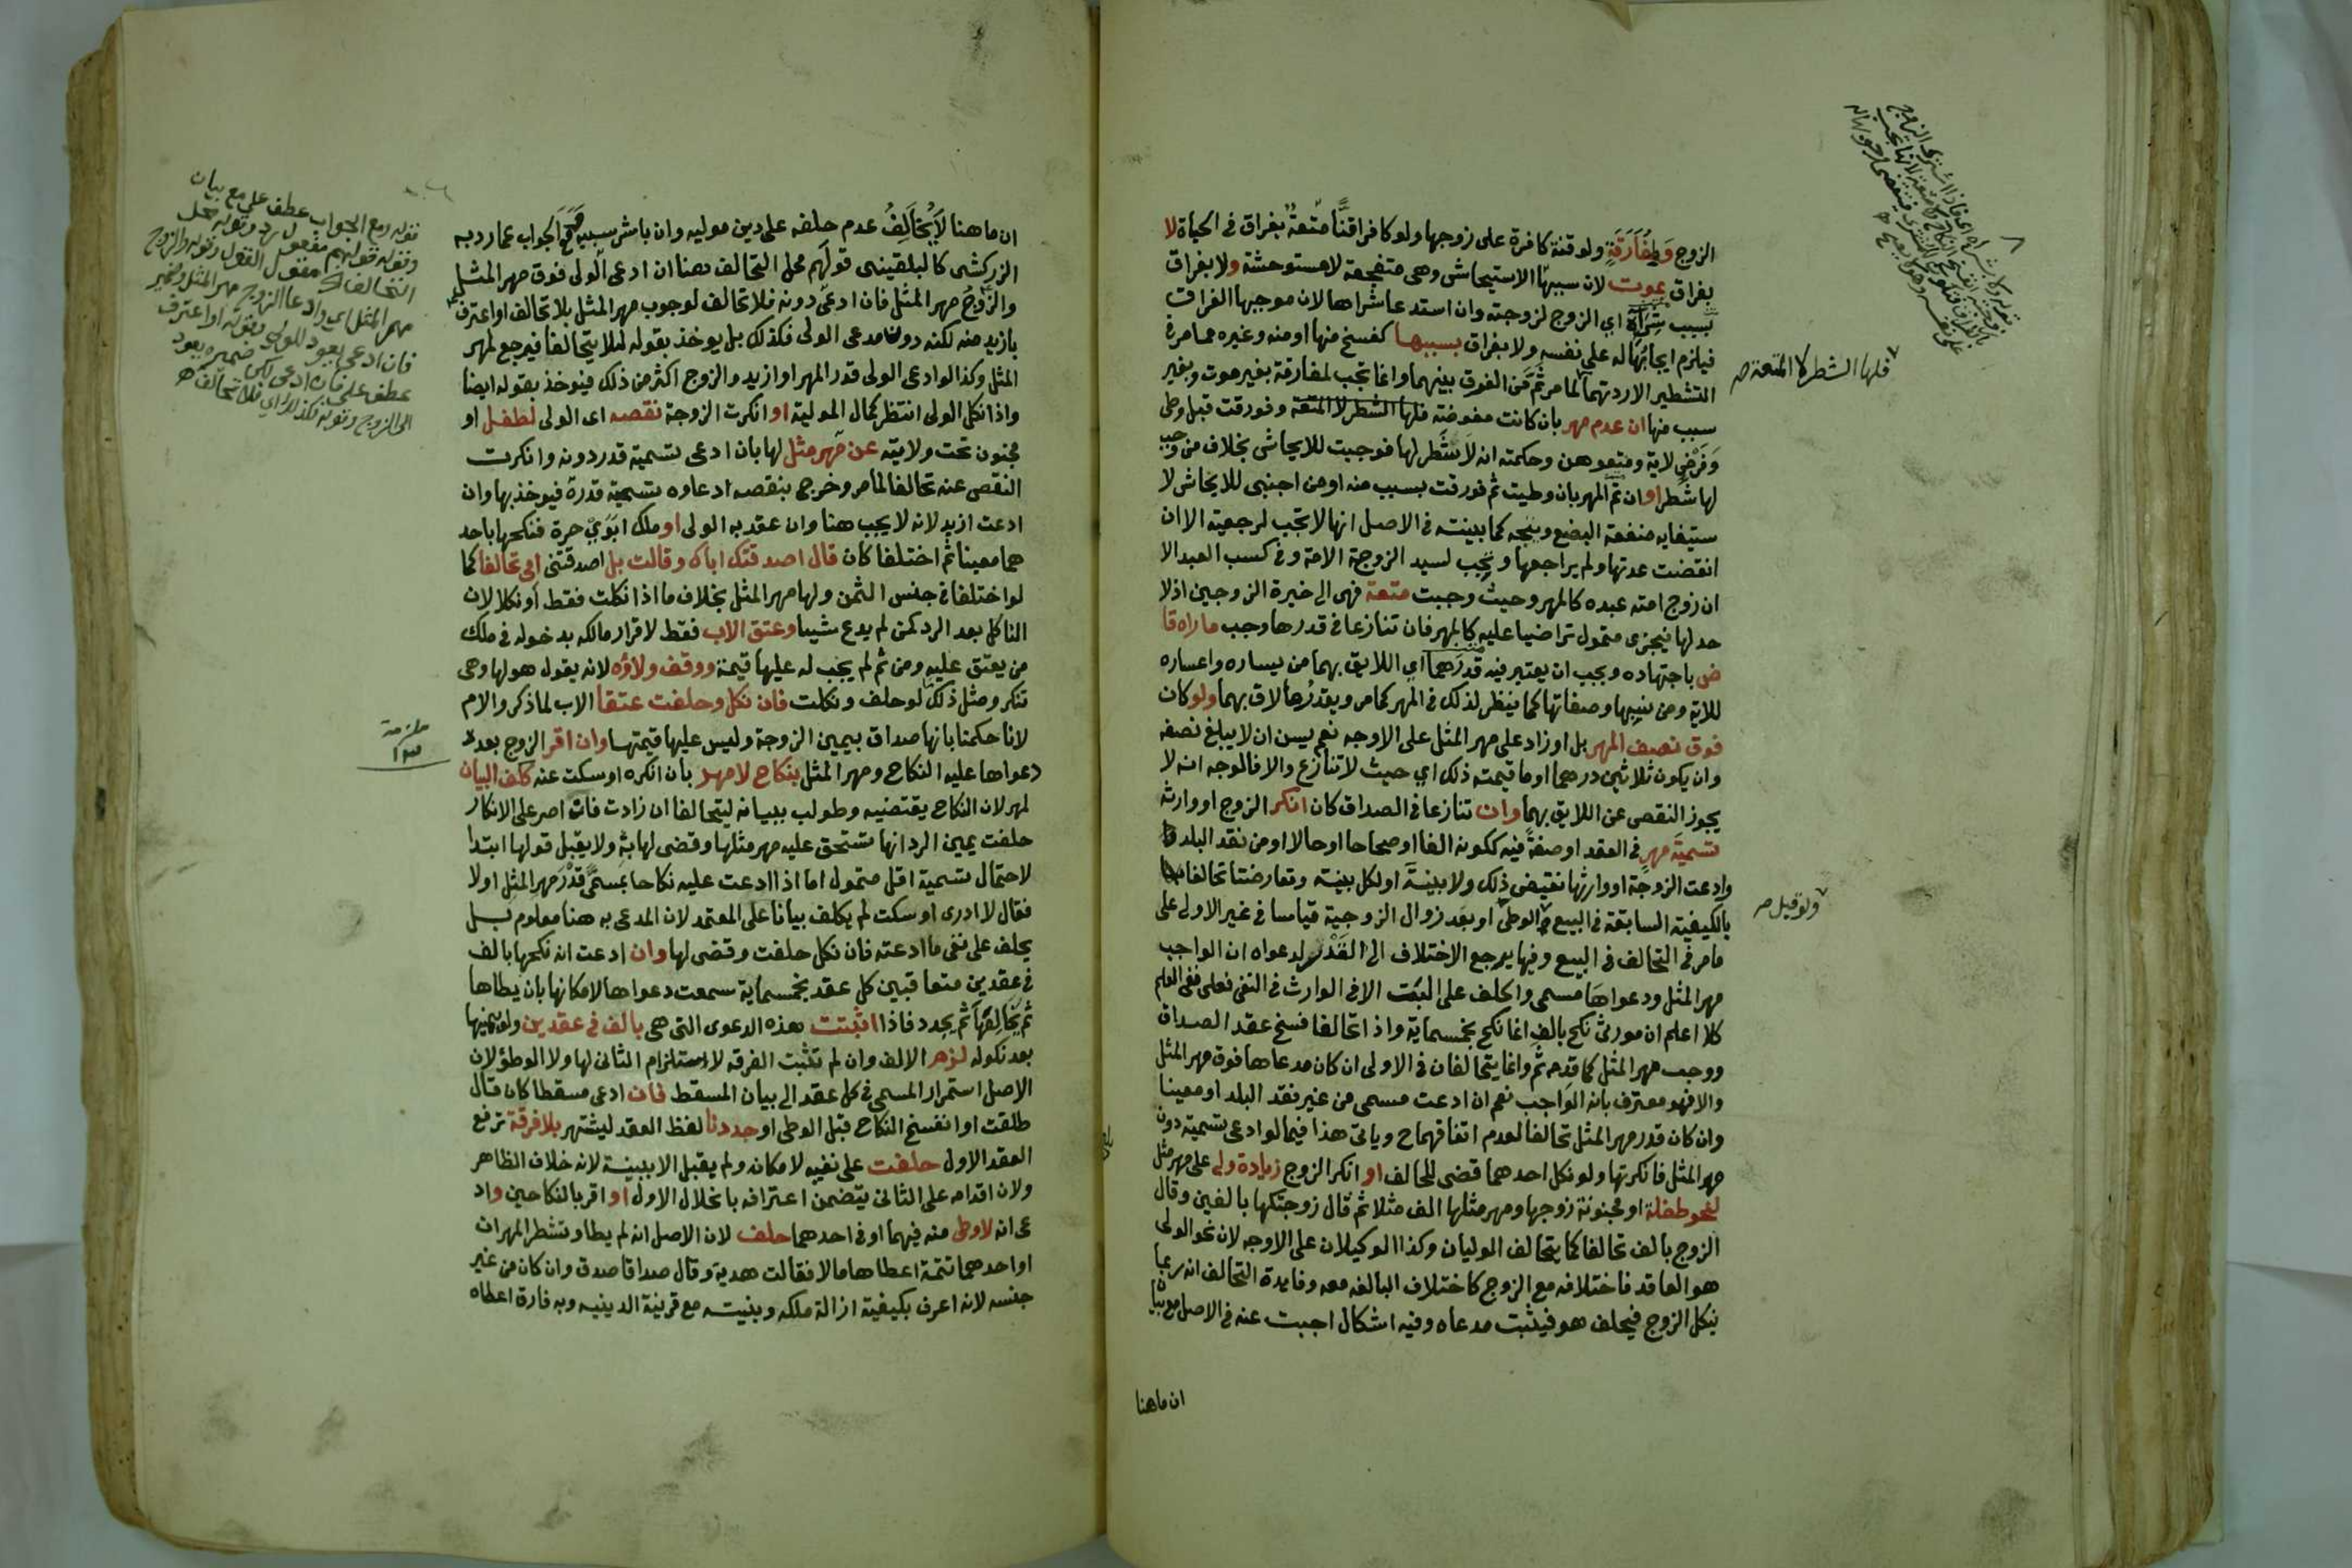 الزوج ومفارقة ولو قنة كافرة على زوجها ولو كافرا قنا متعة بفراق في الحياة لا
بفراق بموت لان سببها الاستيحاش وهي متفجعة لا مستوحشة ولا بفراق
بسبب شراه اي الزوج لزوجته وان استدعا شراها لان موجبها الفراق
فيلزم ايجابها له على نفسه ولا بفراق بسببها كفسخ منها او منه وغيره مما مر في
التشطير الا ردتهما لما مر ثم من الفرق بينهما وانما تجب لمفارقة بغير موت وبغير
سبب منها ان عدم مهر بان كانت مفوضة فلها الشطر لا المتعة وفورقت قبل وطى
وفرض لاية ومتعوهن وحكمته انه لا شطر لها فوجبت للايحاش بخلاف من وجب
لها شطر او ان تم المهر بان وطيت ثم فورقت بسبب منه او من اجنبي للايحاش لا
ستيفايه منفعة البضع ويتجه كما بينته في الاصل انها لا تجب لرجعية الا ان
انقضت عدتها ولم يراجعها وتجب لسيد الزوجة الامة وفي كسب العبد الا
ان زوج امته عبده كالمهر وحيث وجبت متعة فهي الى خيرة الزوجين اذ لا
حد لها فيجزى متمول تراضيا عليه كالمهر فان تنازعا في قدرها وجب ما راه قا
ض باجتهاده ويجب ان يعتبر فيه قدرهما اي اللايق بهما من يساره واعساره
للاية ومن نسبها وصفاتها كما ينظر لذلك في المهر كما مر ويقدرها لاق بهما ولو كان
فوق نصف المهر بل او زاد على مهر المثل على الاوجه نعم يسن ان لا يبلغ نصفه
وان يكون ثلاثين درهما او ما قيمته ذلك اي حيث لا تنازع والا فالموجه انه لا
يجوز النقص عن اللايق بهما وان تنازعا في الصداق كان انكر الزوج او وارثه
تسمية مهر في العقد او صفة فيه ككونه الفا او صحاحا او حالا او من نقد البلد
وادعت الزوجة او وارثها نقيض ذلك ولا بينة او لكل بينة وتعارضتا تحالفا
بالكيفية السابقة في البيع الوطى او بعد زوال الزوجية قياسا في غير الاولى على
ما مر في التحالف في البيع وفيها يرجع الاختلاف الى القدر لدعواه ان الواجب
مهر المثل ودعواها مسمى والحلف على البت الا في الوارث في النفي فعلى نفي العلم
كلا اعلم ان مورثي نكح بالف انما نكح بخمسماية واذا تحالفا فسخ عقد الصداق
ووجب مهر المثل كما قدمه ثم وانما يتحالفان في الاولى ان كان مدعاها فوق مهر المثل
والا فهو معترف بانه الواجب نعم ان ادعت مسمى من غير نقد البلد او معينا
وان كان قدر مهر المثل تحالفا لعدم اتفاقهما ح وياتي هذا فيما لو ادعى تسمية دون
مهر المثل فانكرتها ولو نكل احدهما قضى للحالف او انكر الزوج زيادة ولي على مهر مثل
لنحو طفلة او مجنونة زوجها ومهر مثلها الف مثلا ثم قال زوجتكها بالفين وقال
الزوج بالف تحالفا كما يتحالف الموليان وكذا الوكيلان على الاوجه لان نحو الولي
هو العاقد فاختلافه مع الزوج كاختلاف البالغه معه وفايدة التحالف انه ربما
ينكل الزوج فيحلف هو فيثبت مدعاه وفيه اشكال اجبت عنه في الاصل مع بيا
ان ما هنا
فلها الشطر لا المتعة صح
ولو قبل صح
ان ما هنا لا يخالف عدم حلفه على دين موليه وان باشر سببه مع الجواب عما رد به
الزركشي كالبلقيني قولهم محل التحالف هنا ان ادعى الولى فوق مهر المثل
والزوج مهر المثل فان ادعى دونه فلا تحالف لوجوب مهر المثل بلا تحالف او اعترف
بازيد منه لكنه دون مدعى الولى فكذلك بل يوخذ بقوله لئلا يتحالفا فيرجع لمهر
المثل وكذا لو ادعى الولى قدر المهر او ازيد والزوج اكثر من ذلك فيوخذ بقوله ايضا
واذا نكل الولى انتظر كمال المولية او انكرت الزوجة نقصه اى الولى لطفل او
مجنون تحت ولايته عن مهر مثل لها بان ادعى تسمية قدر دونه وانكرت
النقص عنه تحالفا لما مر وخرج بنقصه ادعاوه تسمية قدره فيوخذ بها وان
ادعت ازيد لانه لا يجب هنا وان عقد به الولى او ملك ابوي حرة فنكحها باحد
هما معينا ثم اختلفا كان قال اصدقتك اباك وقالت بل اصدقتني امي تحالفا كما
لو اختلفا في جنس الثمن ولها مهر المثل بخلاف ما اذا نكلت فقط او نكلا لان
الناكل بعد الرد كمن لم يدع شيا وعتق الاب فقط لاقرار مالكه بدخوله في ملك
من يعتق عليه ومن ثم لم يجب له عليها قيمة ووقف ولاؤه لانه يقول هو لها وهي
تنكر ومثل ذلك لو حلف ونكلت فان نكل وحلفت عتقا الاب لما ذكر والام
لانا حكمنا بانها صداق بيمين الزوجة وليس عليها قيمتها وان اقر الزوج بعد
دعواها عليه النكاح ومهر المثل بنكاح لا مهر بان انكره او سكت عنه كلف البيان
لمهر لان النكاح يقتضيه وطولب ببيانه ليتحالفا ان زادت فان اصر على الانكار
حلفت يمين الرد انها تستحق عليه مهر مثلها وقضى لها به ولا يقبل قولها ابتدا
لاحتمال تسمية اقل متمول اما اذا ادعت عليه نكاحا بمسمى قدر مهر المثل او لا
فقال لا ادرى او سكت لم يكلف بيانا على المعتمد لان المدعى به هنا معلوم بل
يحلف على نفى ما ادعته فان نكل حلفت وقضى لها وان ادعت انه نكحها بالف
في عقدين متعاقبين كل عقد بخمسماية سمعت دعواها لامكانها بان يطاها
ثم يخالعها ثم يجدد فاذا اثبتت هذه الدعوى التى هى بالف في عقدين ولو بيمينها
بعد نكوله لزم الالف وان لم تثبت الفرقه لاستلزام الثانى لها ولا الوطؤ لان
الاصل استمرار المسمى في كل عقد الى بيان المسقط فان ادعى مسقطا كان قال
طلقت او انفسخ النكاح قبل الوطى او جددنا لفظ العقد ليشتهر بلا فرقة ترفع
العقد الاول حلفت على نفيه لامكانه ولم يقبل الا ببينة لانه خلاف الظاهر
ولان اقدامه على الثانى يتضمن اعترافه بانحلال الاول او اقر بالنكاحين واد
عى انه لا وطى منه فيهما او في احدهما حلف لان الاصل انه لم يطا وتشطر المهران
او احدهما تتمة اعطاها مالا فقالت هدية وقال صداقا صدق وان كان من غير
جنسه لانه اعرف بكيفية ازالة ملكه وبنيته مع قرينة الدينيه وبه فارق اعطاه
قوله ومع الجواب عطف على مع بيان
وقوله قولهم مفعول رد وقوله محل
التخالف مفعول القول وقوله والزوج
مهر المثل اي وادعا الزوج مهر المثل وضمير
فان ادعى يعود للولى وقوله او اعترف
عطف على فان ادعى لكن ضميره يعود
الى الزوج وقوله فكذلك اي فلا تحالف